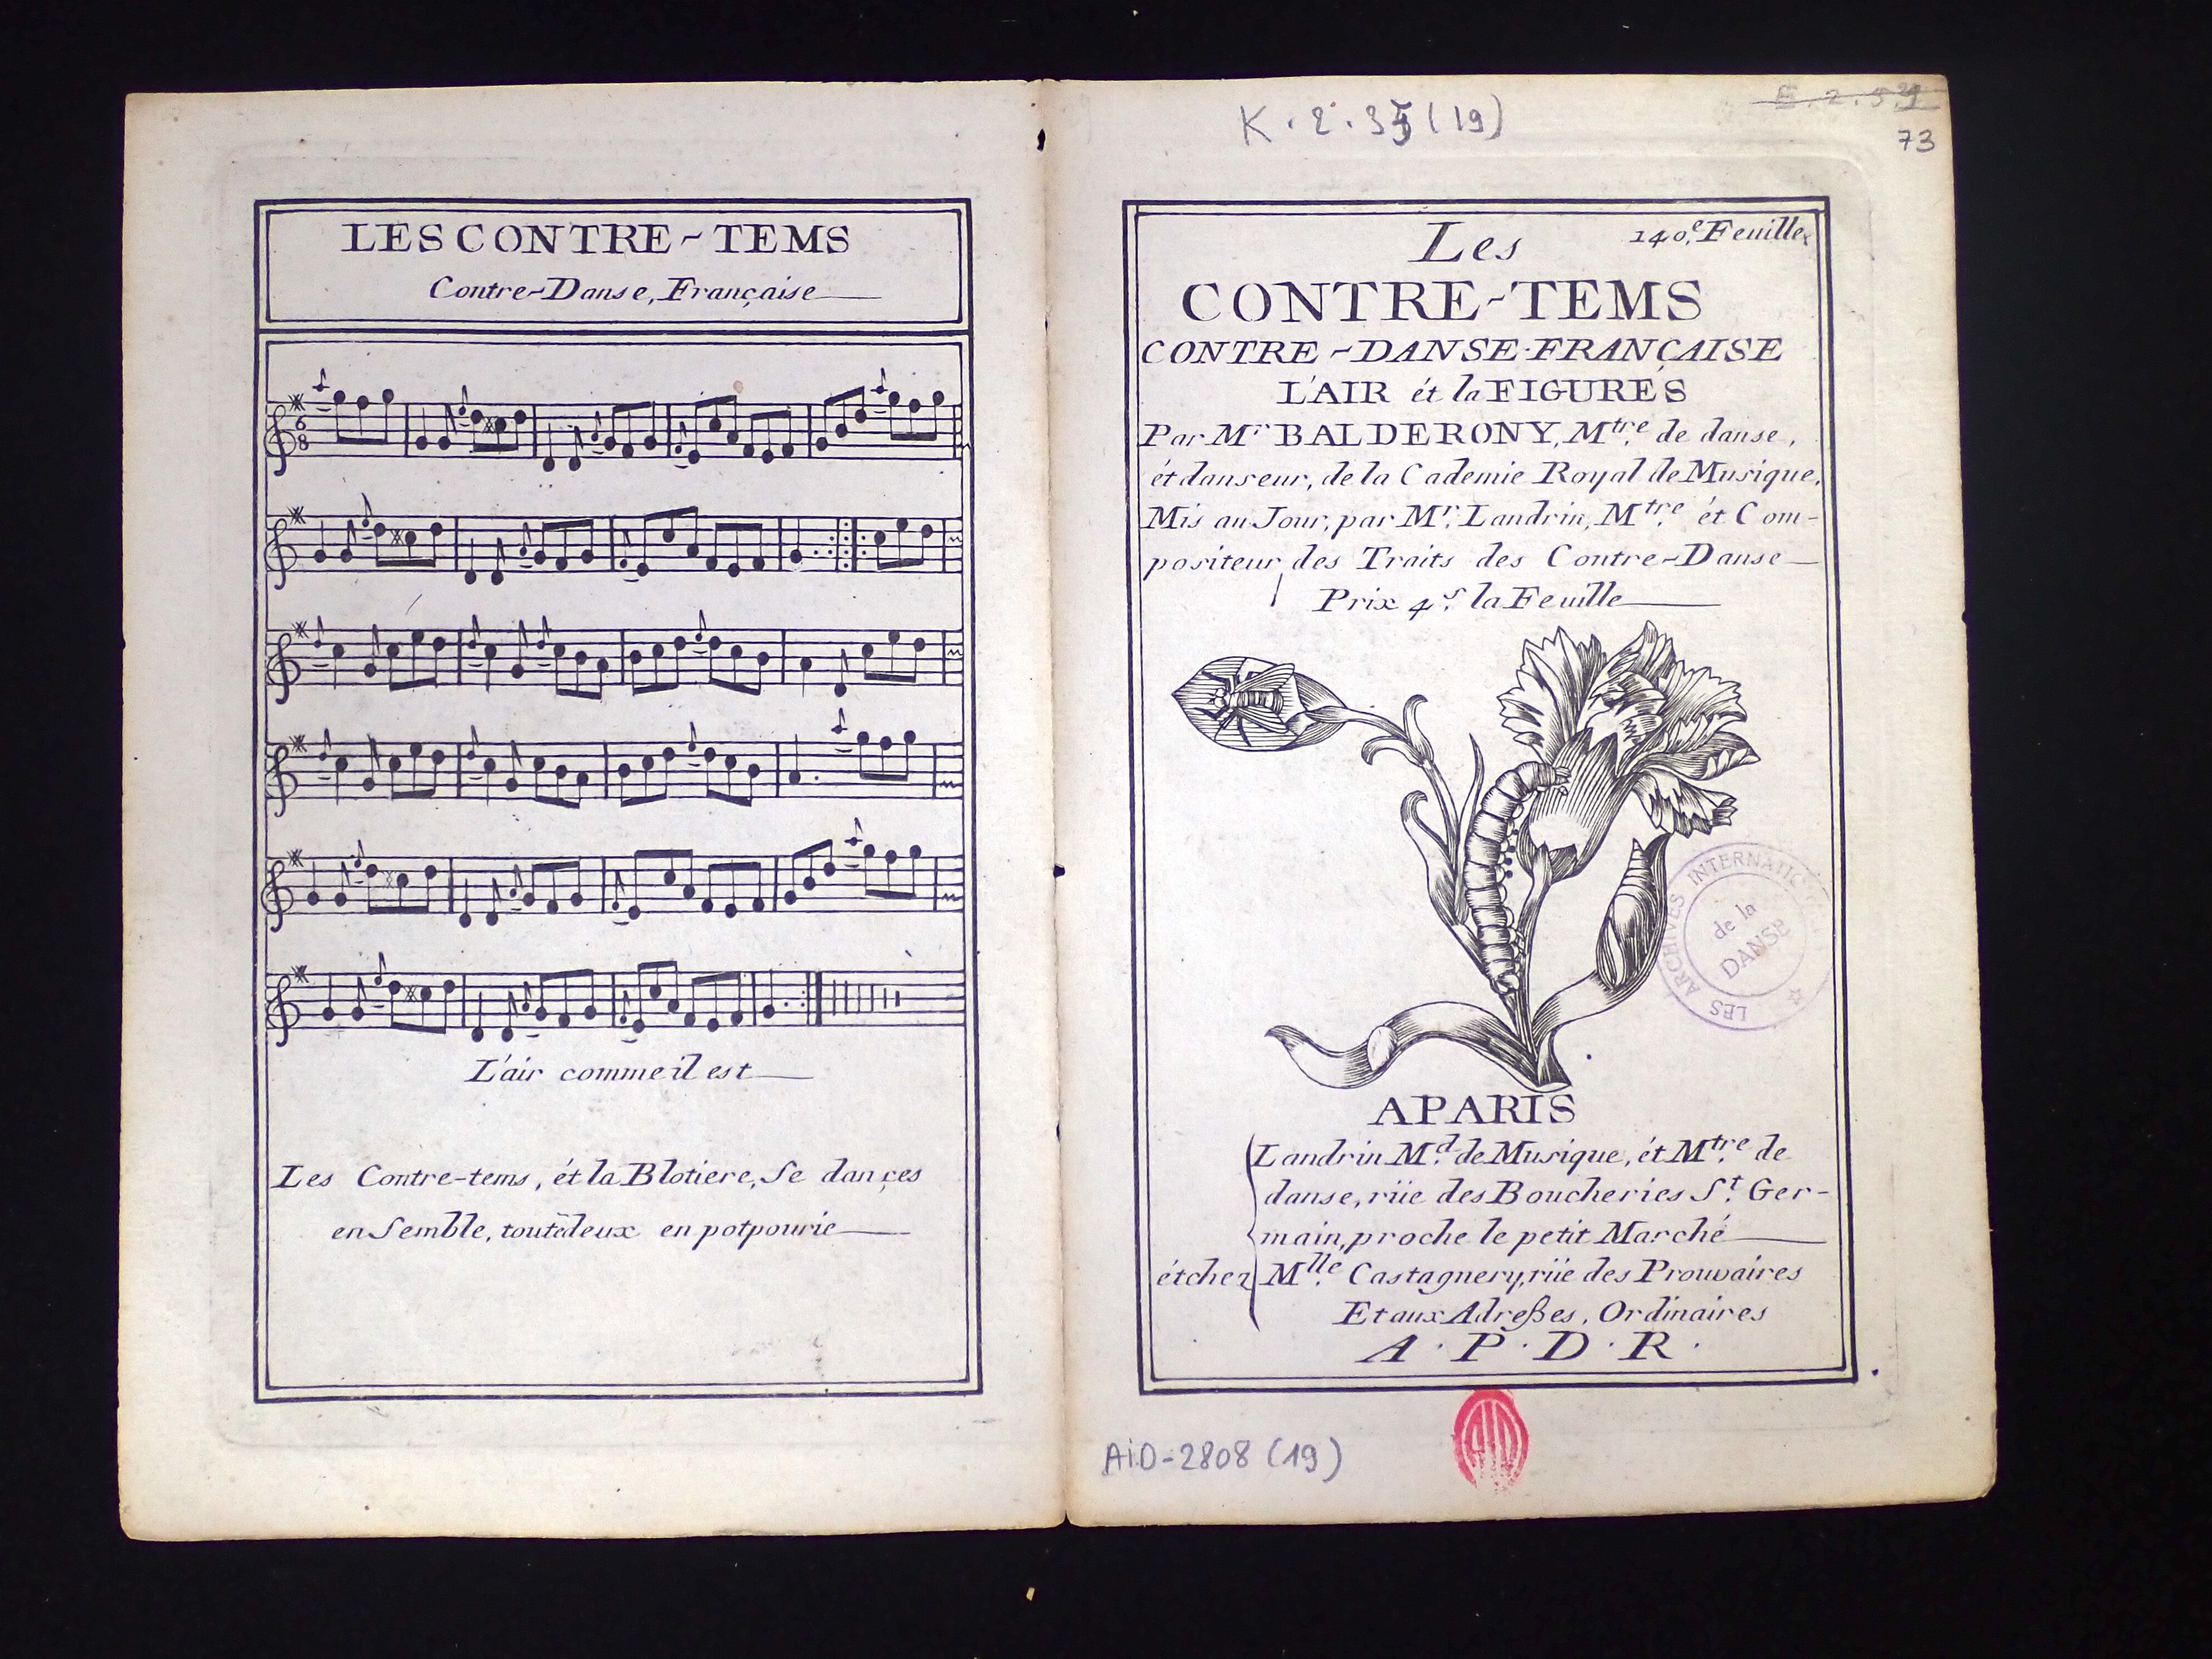 LES CONTRE-TEMS
Contre-Danse, Française
6
8
L'air comme il est
Les Contre-tems, ét la Blotiere, Se dançes
en Semble, toutedeux en potpourie
K. 2. 35 (19)
73
140.e Feuille
Les
CONTRE-TEMS
CONTRE-DANSE-FRANÇAISE
L'AIR ét la FIGURES
Par Mr BALDERONY, Mtre de danse,
ét danseur, de la Cademie Royal de Musique,
Mis au Jour, par Mr. Landrin, Mtre ét Com-
positeur des Traits des Contre-Danse
Prix 4s. la Feuille
LES ARCHIVES INTERNATIO
de la
DANSE
A PARIS
Landrin Md. de Musique, ét Mtre de
danse, rüe des Boucheries St. Ger-
main, proche le petit Marché
ét chez Mlle Castagnery, rüe des Prouvaires
Et aux Adreßes, Ordinaires
A . P . D . R .
AID
AiD-2808 (19)